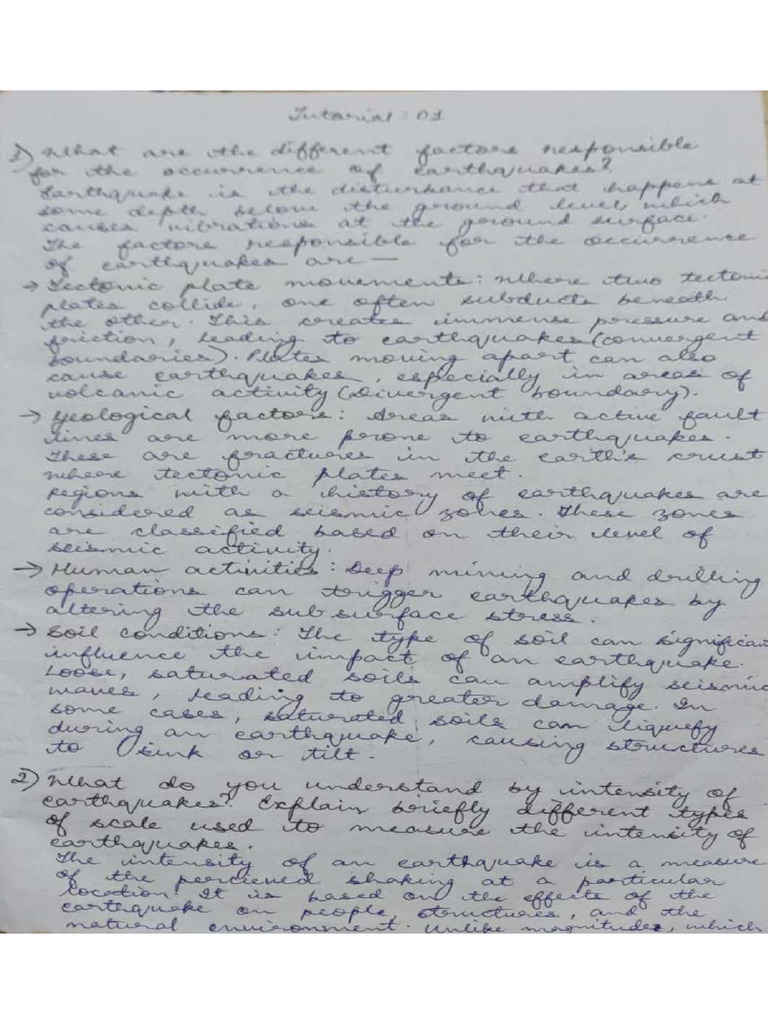 Tutorial: 01
1) What are the different factors responsible
for the occurrence of earthquakes?
Earthquake is the disturbance that happens at
some depth below the ground level which
causes vibrations at the ground surface.
The factors responsible for the occurrence
of earthquakes are —
→ Tectonic plate movements: Where two tectonic
plates collide, one often subducts beneath
the other. This creates immense pressure and
friction, leading to earthquakes (convergent
boundaries). Plates moving apart can also
cause earthquakes, especially in areas of
volcanic activity (Divergent boundary).
→ Geological factors: Areas with active fault
lines are more prone to earthquakes.
These are fractures in the earth's crust
where tectonic plates meet.
Regions with a history of earthquakes are
considered as seismic zones. These zones
are classified based on their level of
seismic activity.
→ Human activities: Deep mining and drilling
operations can trigger earthquakes by
altering the subsurface stress.
→ Soil conditions: The type of soil can significan
influence the impact of an earthquake.
Loose, saturated soils can amplify seismic
waves, leading to greater damage. In
some cases, saturated soils can liquefy
during an earthquake, causing structures
to sink or tilt.
2) What do you understand by intensity of
earthquakes? Explain briefly different types
of scale used to measure the intensity of
earthquakes.
The intensity of an earthquake is a measure
of the percieved shaking at a particular
location. It is based on the effects of the
earthquake on people structures, and the
natural environment. Unlike magnitude, which